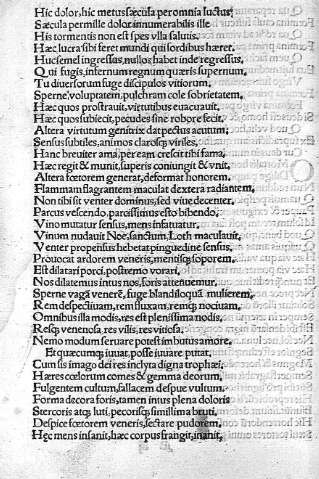 Hic dolor, hic metus sæcula per omnia luctus,
Sæcula per mille dolor innumerabilis ille
His tormentis non est spes vlla salutis,
Hæc lucra sibi feret mundi qui sordibus hæret,
Huc semel ingressus, nullos habet inde regressus,
Qui fugis, infernum regnum quæris supernum,
Tu diuersorum fuge discipulos vitiorum,
Sperne voluptatem, pulchram cole sobrietatem,
Hæc quos prostrauit, virtutibus euacuauit,
Hæc quos subiecit, pecudes sine robore fecit,
Altera virtutum genitrix dat pectus acutum,
Sensus subtiles, animos clarosque viriles,
Hanc breuiter ama, per eam crescit tibi fama,
Hæc regit & munit, superis coniungit & vnit,
Altera fœtorem generat, deformat honorem,
Flammam flagrantem maculat dextera radiantem,
Non tibi sit venter dominus, sed viue decenter,
Parcus vescendo, parcissimus esto bibendo,
Vino mutatur sensus, mens infatuatur,
Vinum nudauit Noe, sanctum Loth maculauit,
Venter propensus hebetat pinguedine sensus,
Prouocat ardorem veneris, mentisque soporem,
Est dilatari porci, postremo vorari,
Nos dilatemus intus nos, foris attenuemur,
Sperne vagā venerē, fuge blandiloquā mulierem,
Rem despectiuam, rem fluxam, remque nociuam,
Omnibus illa modis, res est plenissima nodis,
Resque venenosa, res vilis, res vitiosa,
Nemo modum seruare potest imbutus amore,
Et quæcumque iuuat, posse iuuare putat,
Cum sis imago dei res inclyta digna trophæi,
Hæres cœlorum comes & gemma deorum,
Fulgentem cultum, fallacem despue vultum,
Forma decora foris, tamen intus plena doloris
Stercoris atque luti, pecorisque simillima bruti,
Despice fœtorem veneris, sectare pudorem,
Hęc mens insanit, hæc corpus frangit, inanit,